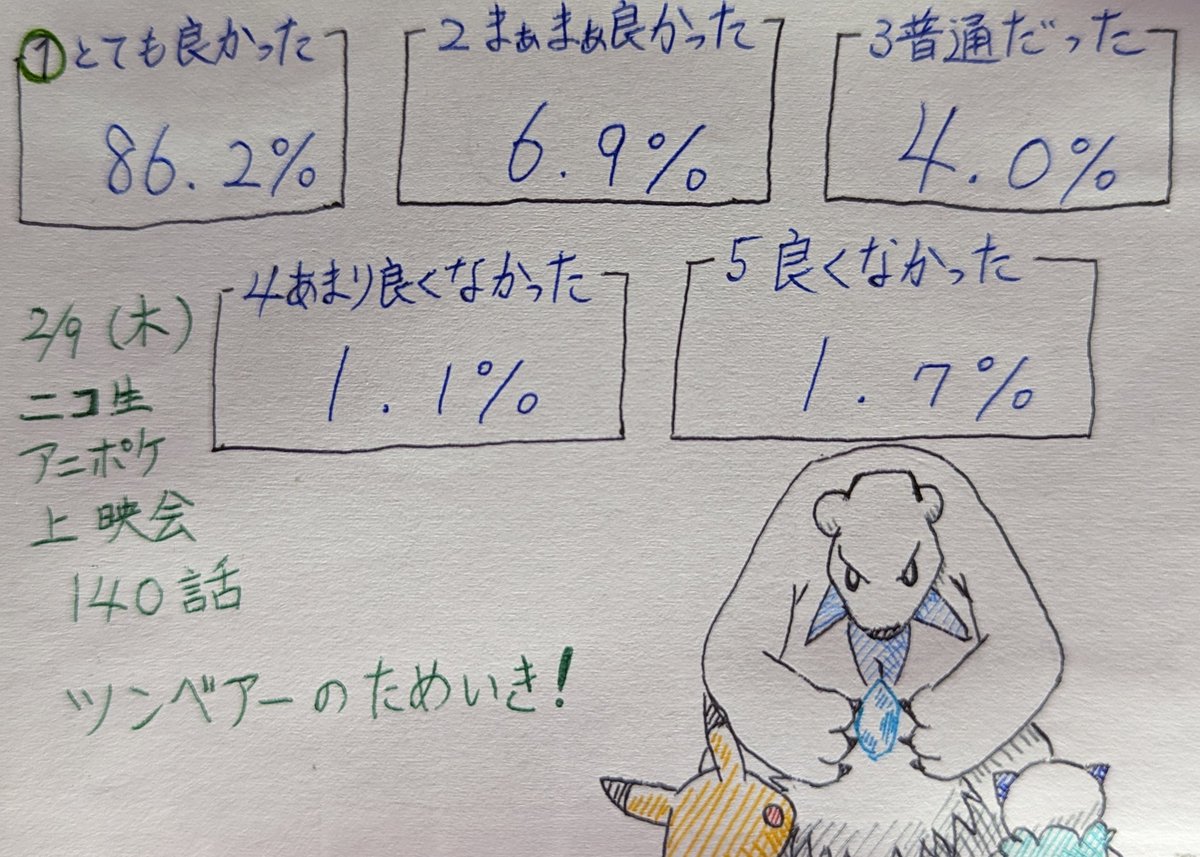 ①とても良かった
86.2%
2まぁまぁ良かった
6.9%
3普通だった
4.0%
4あまり良くなかった
1.1%
5良くなかった
1.7%
2/9(木)
ニコ生
アニポケ
上映会
140話
ツンベアーのためいき!